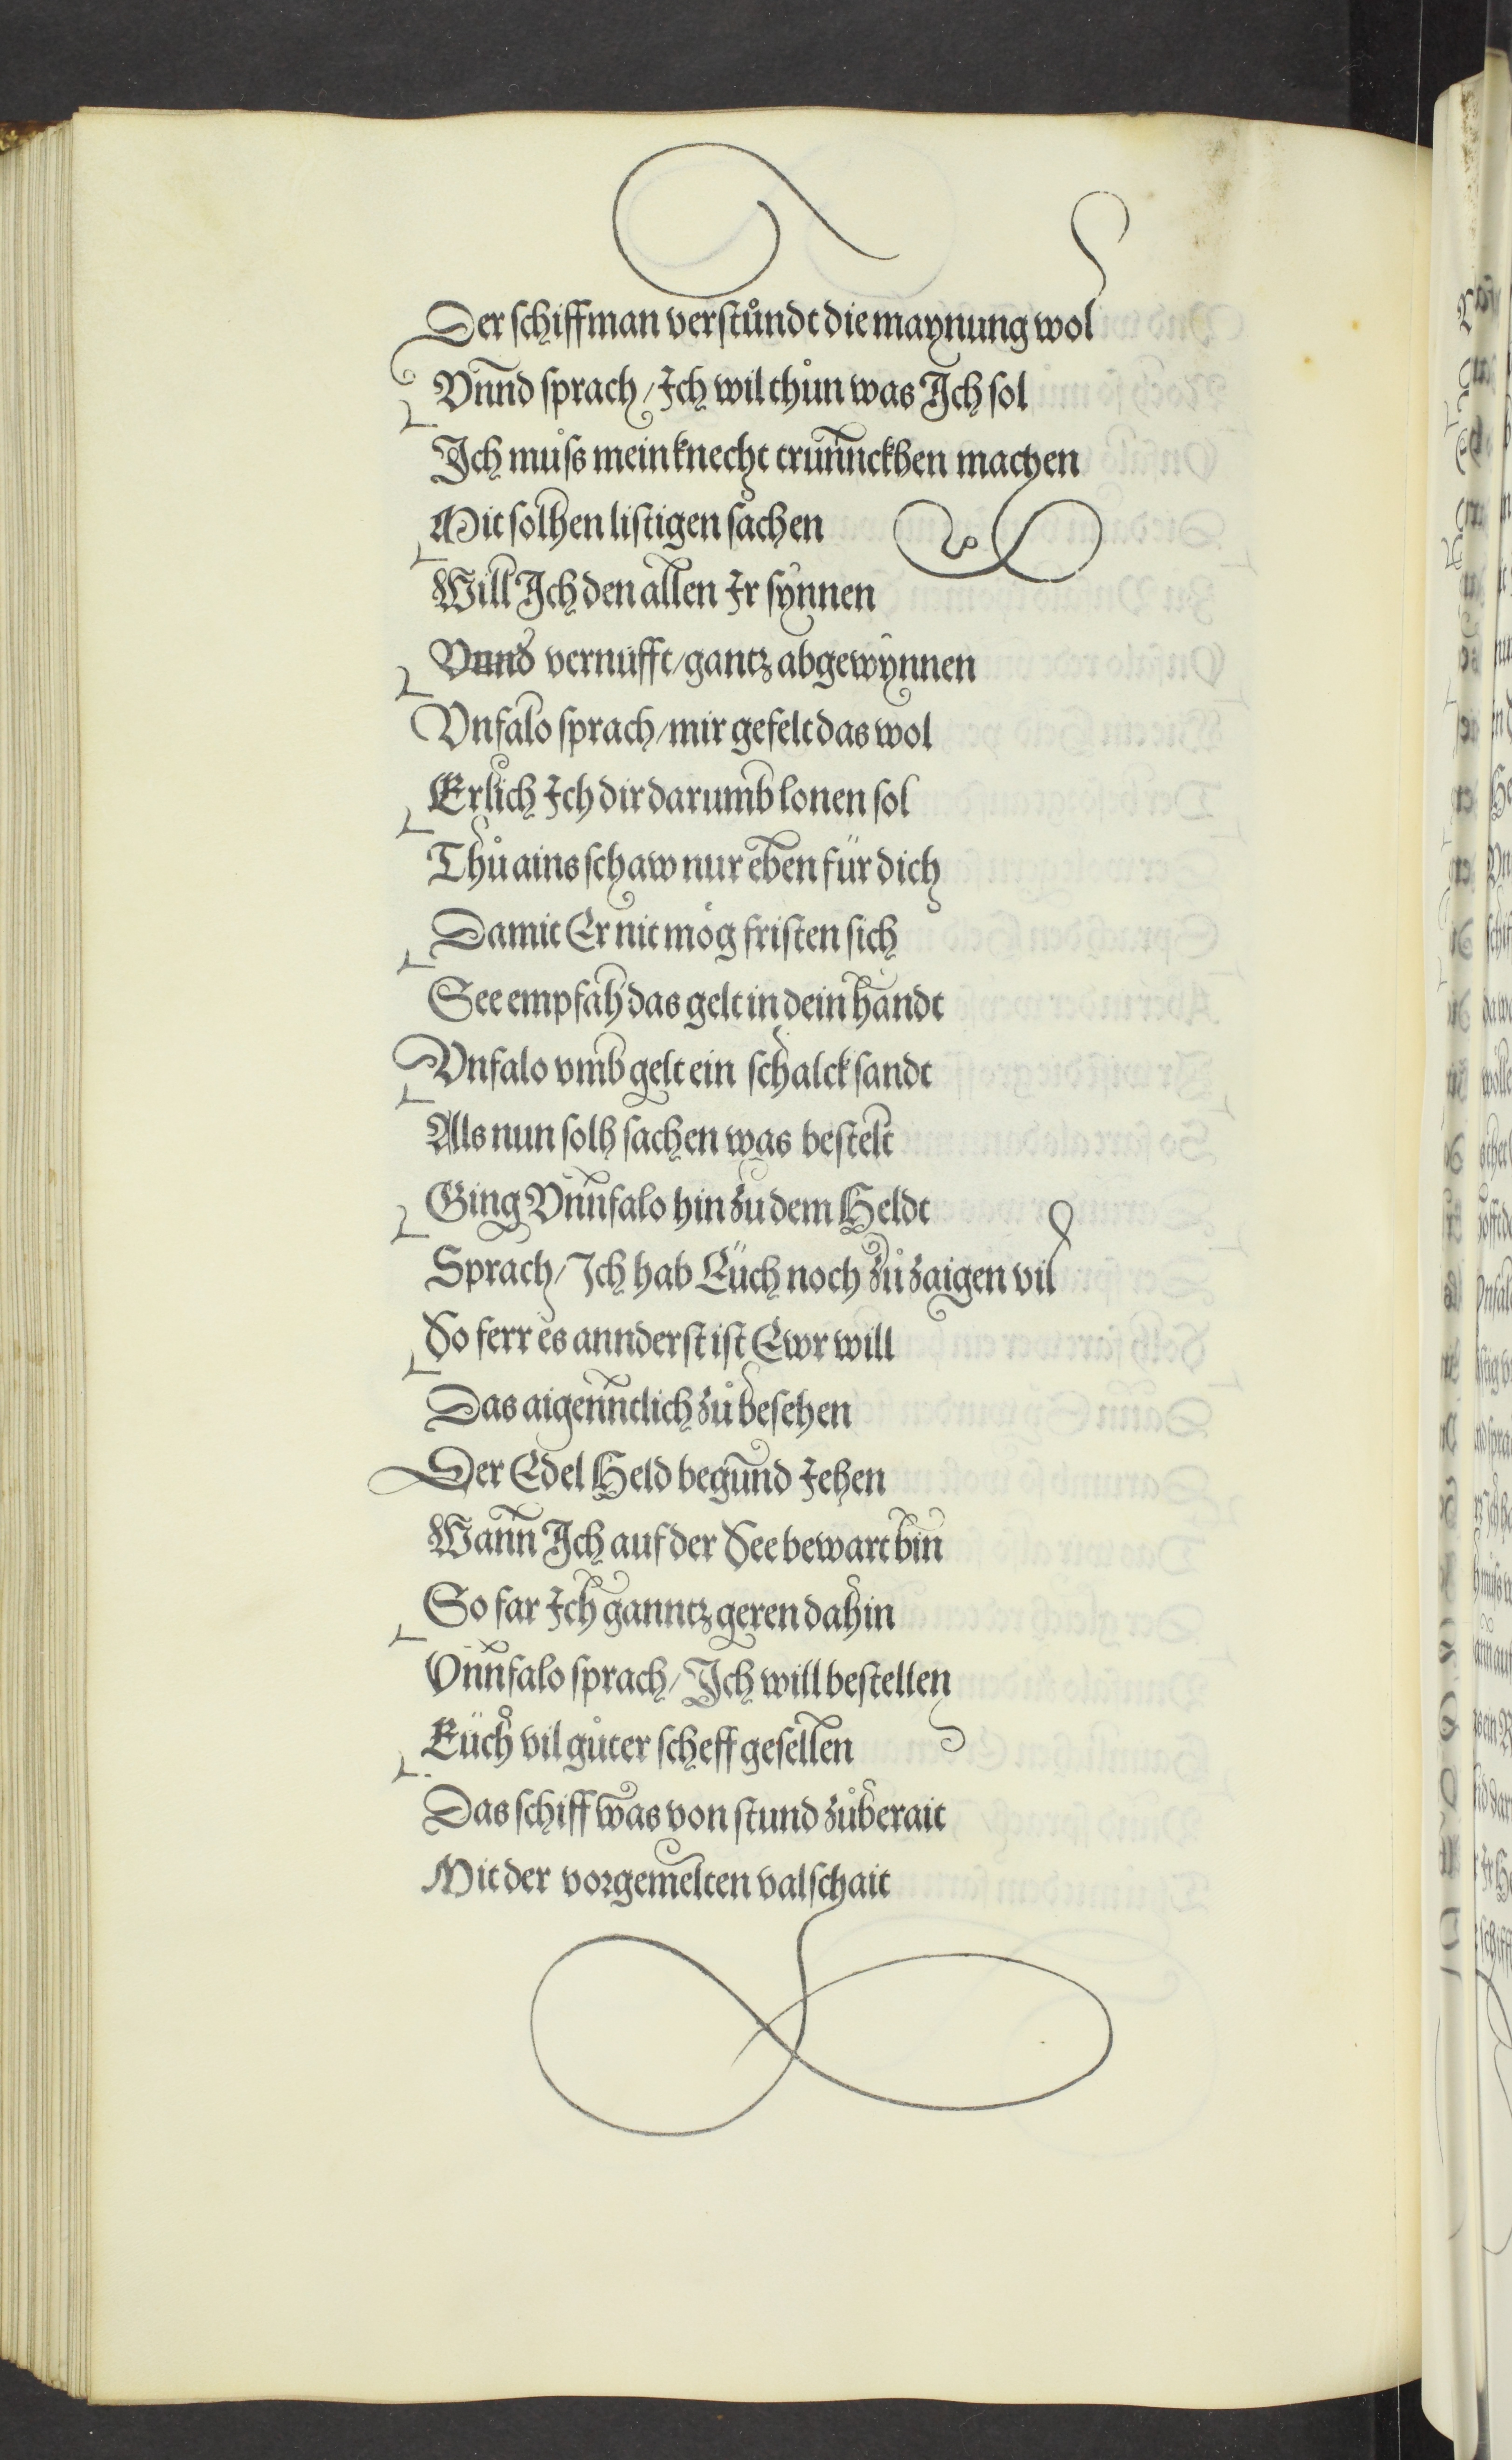 Der ſchiffman verſtůndt die maynung wol
Vnnd ſprach / Ich wil thůn was Ich ſol
Ich můſs mein knecht trunnckhen machen
Mit ſolhen liſtigen ſachen
Will Ich den allen Ir ſynnen
Vnnd vernufft / gantz abgewynnen
Vnfalo ſprach / mir gefelt das wol
Erlich Ich dir darumb lonen ſol
Thů ains ſchaw nur eben für dich
Damit Er nit mög friſten ſich
See empfah das gelt in dein handt
Vnfalo vmb gelt ein ſchalck ſandt
Als nun ſolh ſachen was beſtelt
Ging Vnnfalo hin zu dem Heldt
Sprach / Ich hab Eüch noch zů zaigen vil
So ferr es annderſt iſt Ewr will
Das aigenntlich zů beſehen
Der Edel Held begund Jehen
Wann Ich auf der See bewart bin
So far Ich ganntz geren dahin
Vnnfalo ſprach / Ich will beſtellen
Eüch vil gůter ſcheff geſellen
Das ſchiff was von ſtund zůberait
Mit der vorgemelten valſchait